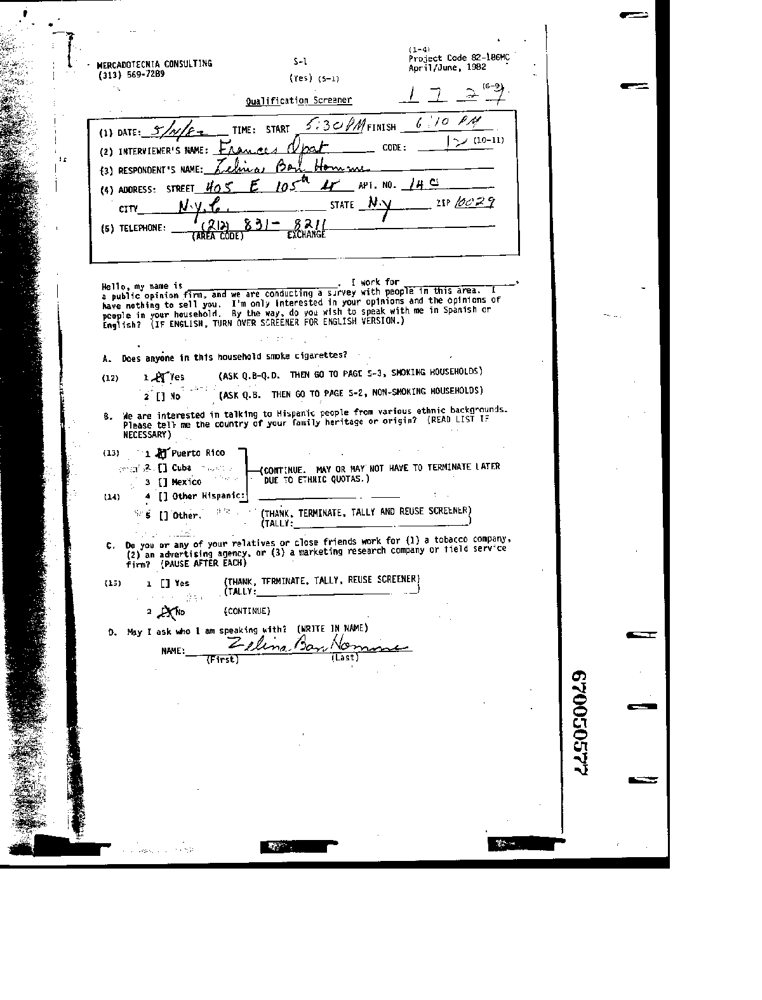 (1-4)
MERCADOTECNIA CONSULTING S-1 Project Code 82-186MC
(313) 569-7289 (Yes) (5-1) April/June, 1982
1 7 2 (6-9)
Qualification Screener
(1) DATE: TIME: START 5:30 PM FINISH 6:10 PM
(2) INTERVIEWER'S NAME: Frances CODE: 12 (10-11)
(3) RESPONDENT'S NAME: Zelina Bon Homme
(4) ADDRESS: STREET 405 E 105th St APT. NO. 14 C
CITY N.Y.C. STATE N.Y ZIP 10029
(5) TELEPHONE: (212) 831- 8211
(AREA CODE) EXCHANGE
Hello, my name is . I work for ,
a public opinion firm, and we are conducting a survey with people in this area. I
have nothing to sell you. I'm only interested in your opinions and the opinions of
people in your household. By the way, do you wish to speak with me in Spanish or
English? (IF ENGLISH, TURN OVER SCREENER FOR ENGLISH VERSION.)
A. Does anyone in this household smoke cigarettes?
(12) 1 [] Yes (ASK Q.B-Q.D. THEN GO TO PAGE S-3, SMOKING HOUSEHOLDS)
2 [] No (ASK Q.B. THEN GO TO PAGE S-2, NON-SMOKING HOUSEHOLDS)
B. We are interested in talking to Hispanic people from various ethnic backgrounds.
Please tell me the country of your family heritage or origin? (READ LIST IF
NECESSARY)
(13) 1 [] Puerto Rico
2 [] Cuba (CONTINUE. MAY OR MAY NOT HAVE TO TERMINATE LATER
3 [] Mexico DUE TO ETHNIC QUOTAS.)
(14) 4 [] Other Hispanic:
5 [] Other. (THANK, TERMINATE, TALLY AND REUSE SCREENER)
(TALLY: )
C. Do you or any of your relatives or close friends work for (1) a tobacco company,
(2) an advertising agency, or (3) a marketing research company or field service
firm? (PAUSE AFTER EACH)
(15) 1 [] Yes (THANK, TERMINATE, TALLY, REUSE SCREENER)
(TALLY: )
2 [X] No (CONTINUE)
D. May I ask who I am speaking with? (WRITE IN NAME)
NAME: Zelina Bon Homme
(First) (Last)
670050577